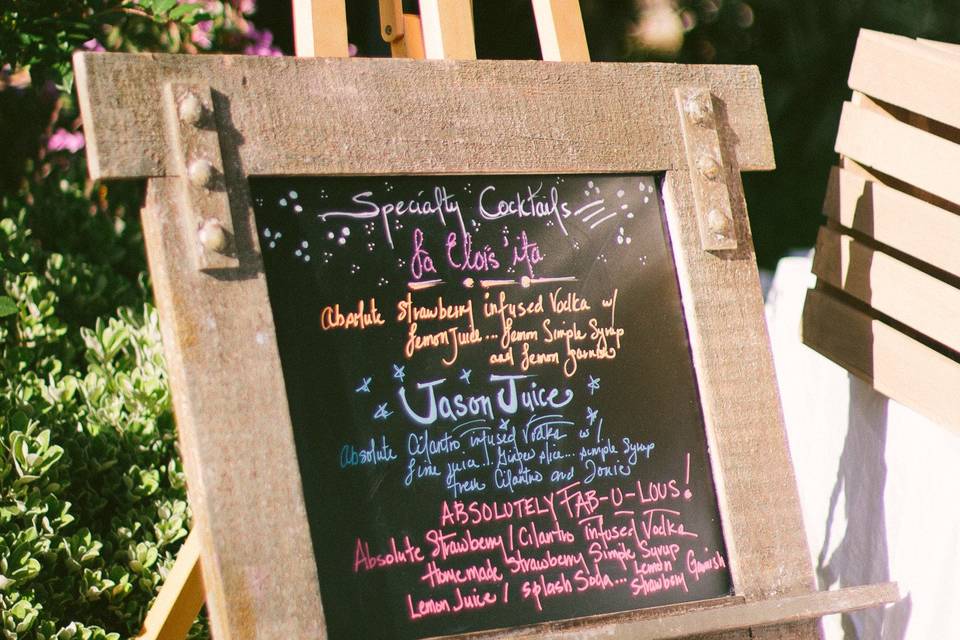 Specialty Cocktails
La Elois'ita
Absolute Strawberry infused Vodka w/
Lemon Juice... Lemon Simple Syrup
and Lemon Garnish
Jason Juice
Absolute Cilantro infused Vodka w/
Lime juice... Ginger slice... simple Syrup
fresh Cilantro and Tonic
ABSOLUTELY FAB-U-LOUS!
Absolute Strawberry/Cilantro infused Vodka
Homemade Strawberry Simple Syrup
Lemon Juice / splash Soda... Lemon
Strawberry Garnish